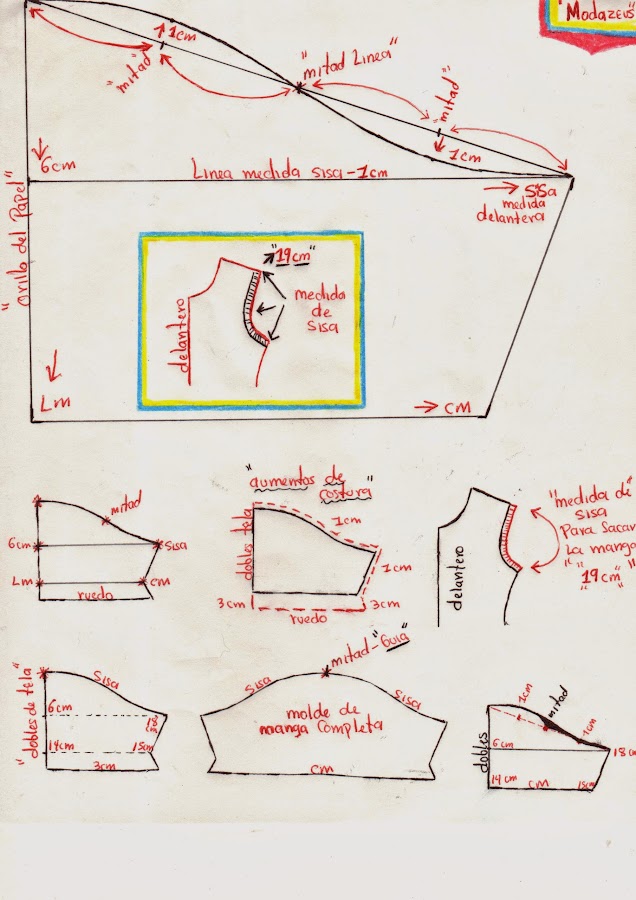 "Modazeus"
1cm
"mitad"
"mitad Linea"
"mitad"
1cm
6cm
Linea medida sisa-1cm
SiSa
medida
delantera
"orillo del Papel"
"19cm"
medida
de
sisa
delantero
Lm
CM
mitad
6cm
Sisa
Lm
cm
ruedo
"aumentos de
costura"
1cm
dobles tela
1cm
3cm
3cm
ruedo
"medida de"
sisa
Para Sacar
La manga
"19cm"
delantero
"dobles de tela"
Sisa
6cm
14cm
15cm
3cm
mitad-"Guia"
Sisa
Sisa
molde de
manga Completa
CM
1cm
mitad
1cm
dobles
6cm
18cm
14cm
CM
15cm